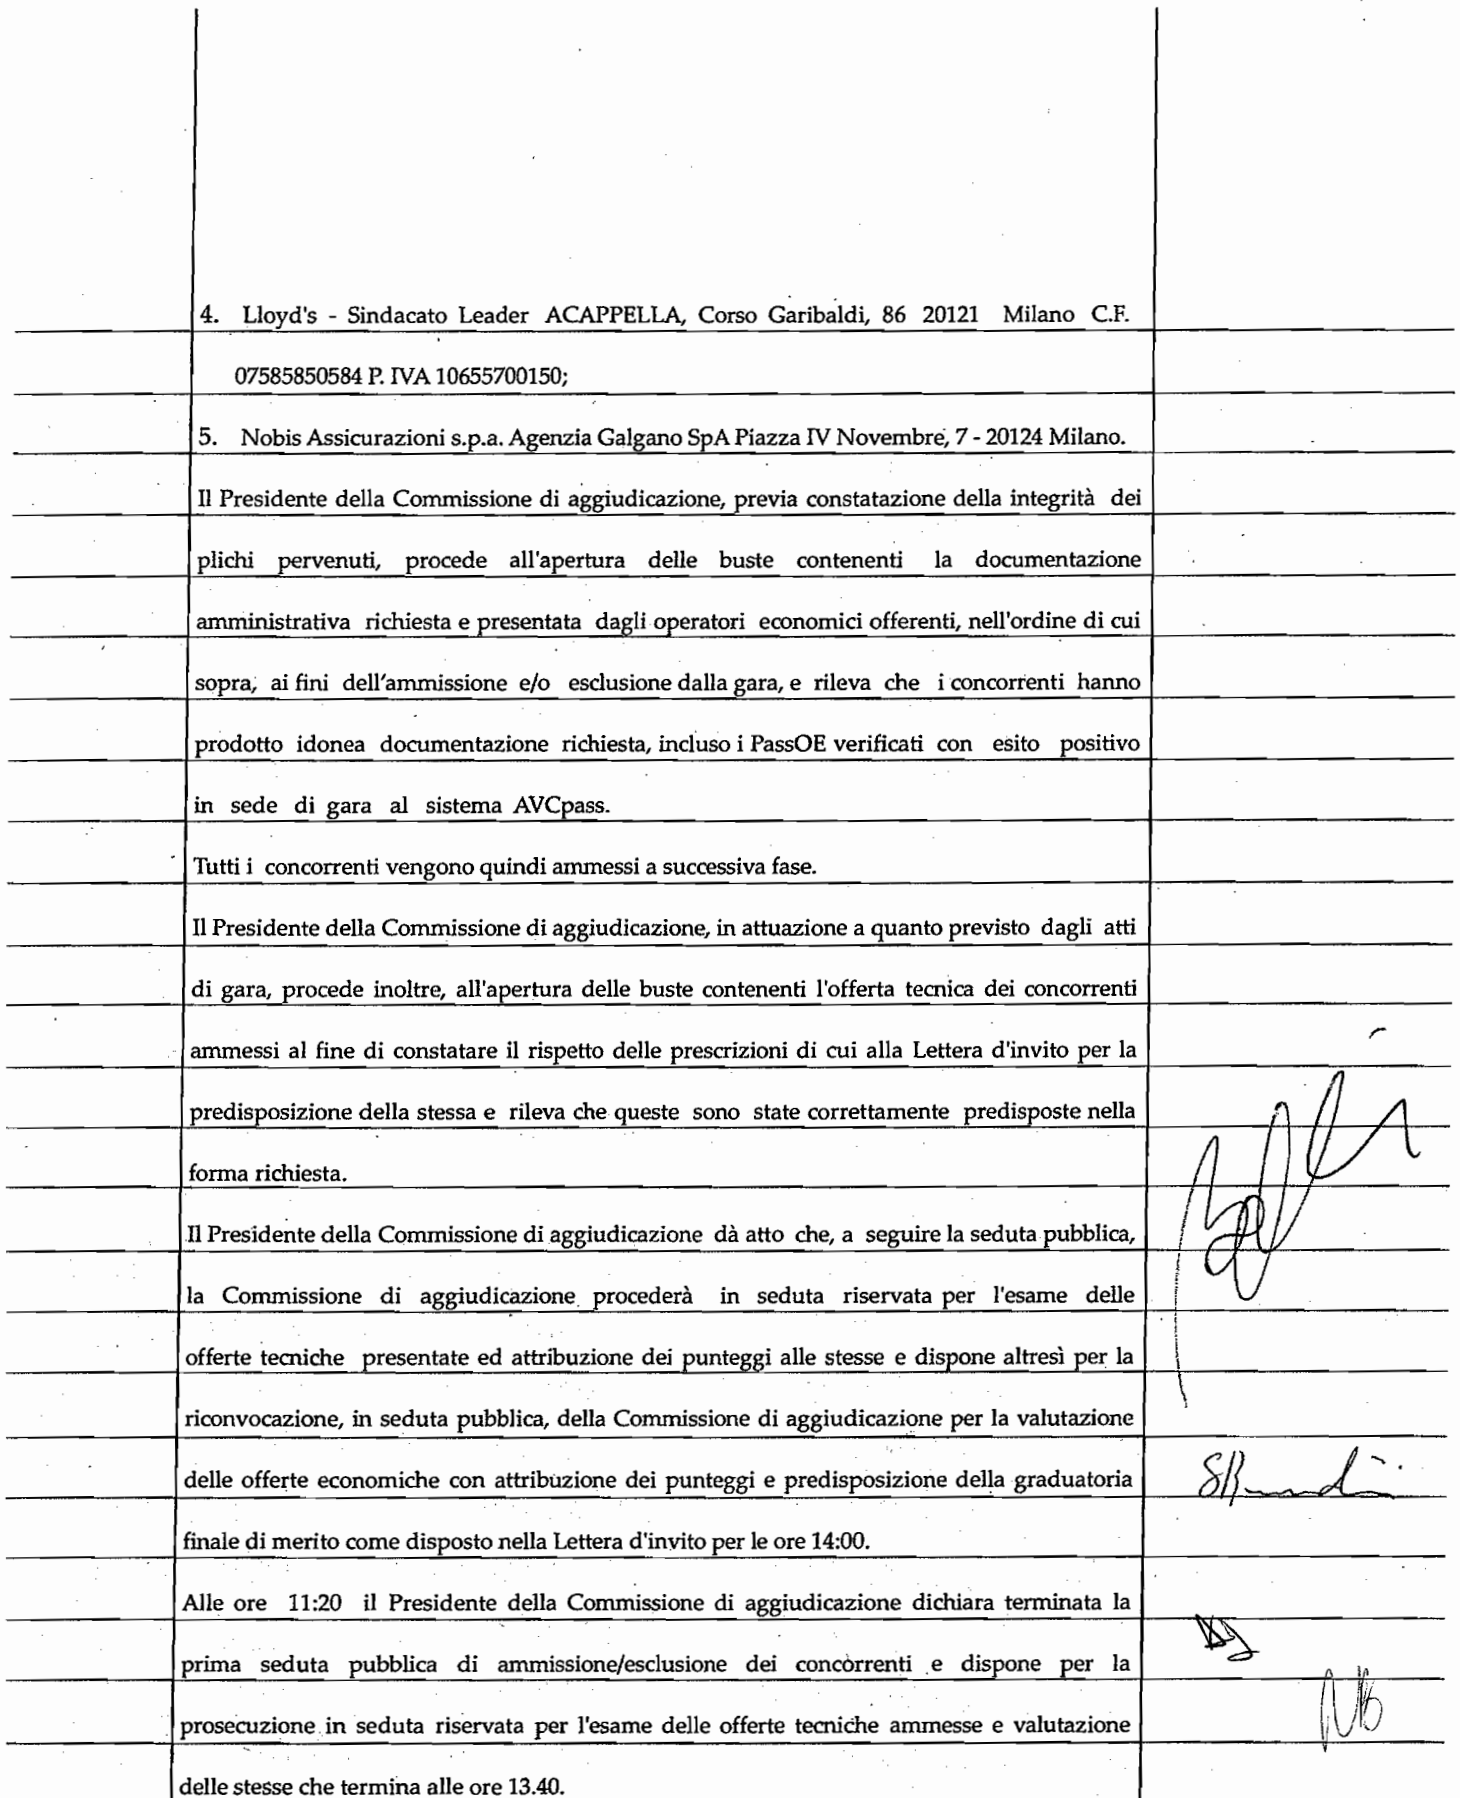 4. Lloyd's - Sindacato Leader ACAPPELLA, Corso Garibaldi, 86 20121 Milano C.F.
07585850584 P. IVA 10655700150;
5. Nobis Assicurazioni s.p.a. Agenzia Galgano SpA Piazza IV Novembre, 7 - 20124 Milano.
Il Presidente della Commissione di aggiudicazione, previa constatazione della integrità dei
plichi pervenuti, procede all'apertura delle buste contenenti la documentazione
amministrativa richiesta e presentata dagli operatori economici offerenti, nell'ordine di cui
sopra, ai fini dell'ammissione e/o esclusione dalla gara, e rileva che i concorrenti hanno
prodotto idonea documentazione richiesta, incluso i PassOE verificati con esito positivo
in sede di gara al sistema AVCpass.
Tutti i concorrenti vengono quindi ammessi a successiva fase.
Il Presidente della Commissione di aggiudicazione, in attuazione a quanto previsto dagli atti
di gara, procede inoltre, all'apertura delle buste contenenti l'offerta tecnica dei concorrenti
ammessi al fine di constatare il rispetto delle prescrizioni di cui alla Lettera d'invito per la
predisposizione della stessa e rileva che queste sono state correttamente predisposte nella
forma richiesta.
Il Presidente della Commissione di aggiudicazione dà atto che, a seguire la seduta pubblica,
la Commissione di aggiudicazione procederà in seduta riservata per l'esame delle
offerte tecniche presentate ed attribuzione dei punteggi alle stesse e dispone altresì per la
riconvocazione, in seduta pubblica, della Commissione di aggiudicazione per la valutazione
delle offerte economiche con attribuzione dei punteggi e predisposizione della graduatoria
finale di merito come disposto nella Lettera d'invito per le ore 14:00.
Alle ore 11:20 il Presidente della Commissione di aggiudicazione dichiara terminata la
prima seduta pubblica di ammissione/esclusione dei concorrenti e dispone per la
prosecuzione in seduta riservata per l'esame delle offerte tecniche ammesse e valutazione
delle stesse che termina alle ore 13.40.